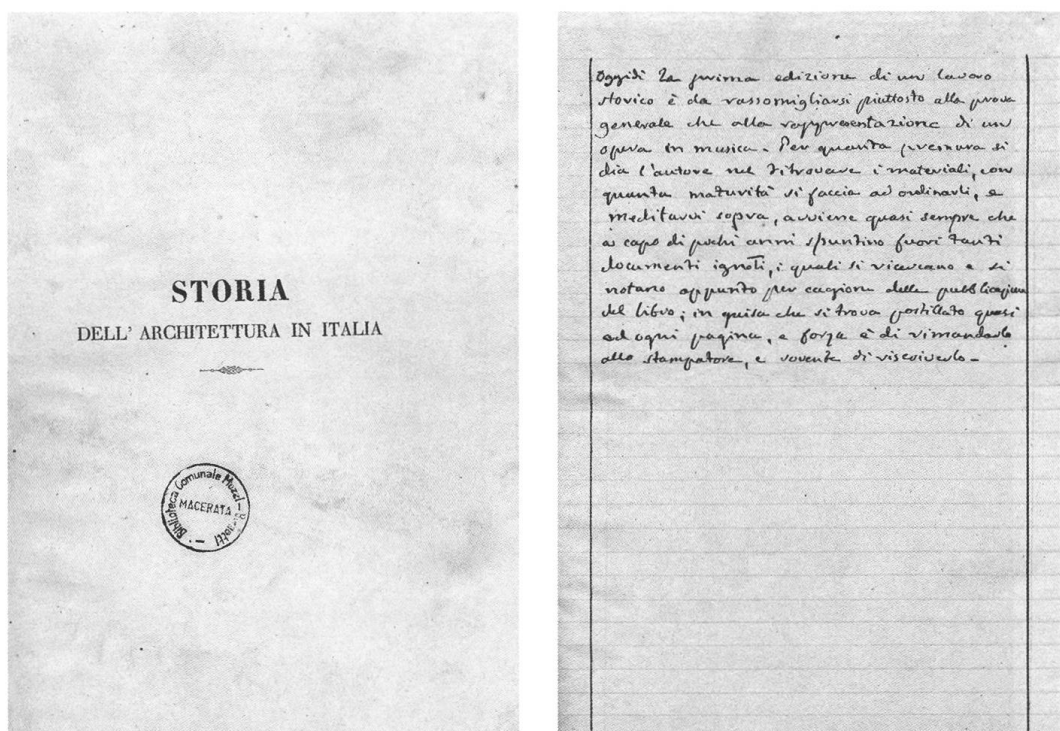 STORIA
DELL' ARCHITETTURA IN ITALIA
Biblioteca Comunale Mozzi - Borgetti -
MACERATA
Oggidì la prima edizione di un lavoro
storico è da rassomigliarsi piuttosto alla prova
generale che alla rappresentazione di un
opera in musica. Per quanta premura si
dia l'autore nel ritrovare i materiali, con
quanta maturità si faccia ad ordinarli, e
meditarvi sopra, avviene quasi sempre che
a capo di pochi anni spuntino fuori tanti
documenti ignoti, i quali si ricercano e si
notano appunto per cagione delle pubblicazione
del libro; in guisa che si trova postillato quasi
ad ogni pagina, e forza è di rimandarlo
allo stampatore, e sovente di riscriverlo -